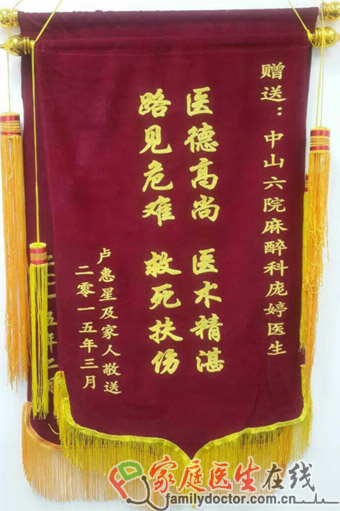 赠送：中山六院麻醉科庞婷医生
医德高尚 医术精湛
路见危难 救死扶伤
卢惠星及家人敬送
二零一五年三月
家庭医生在线
familydoctor.com.cn